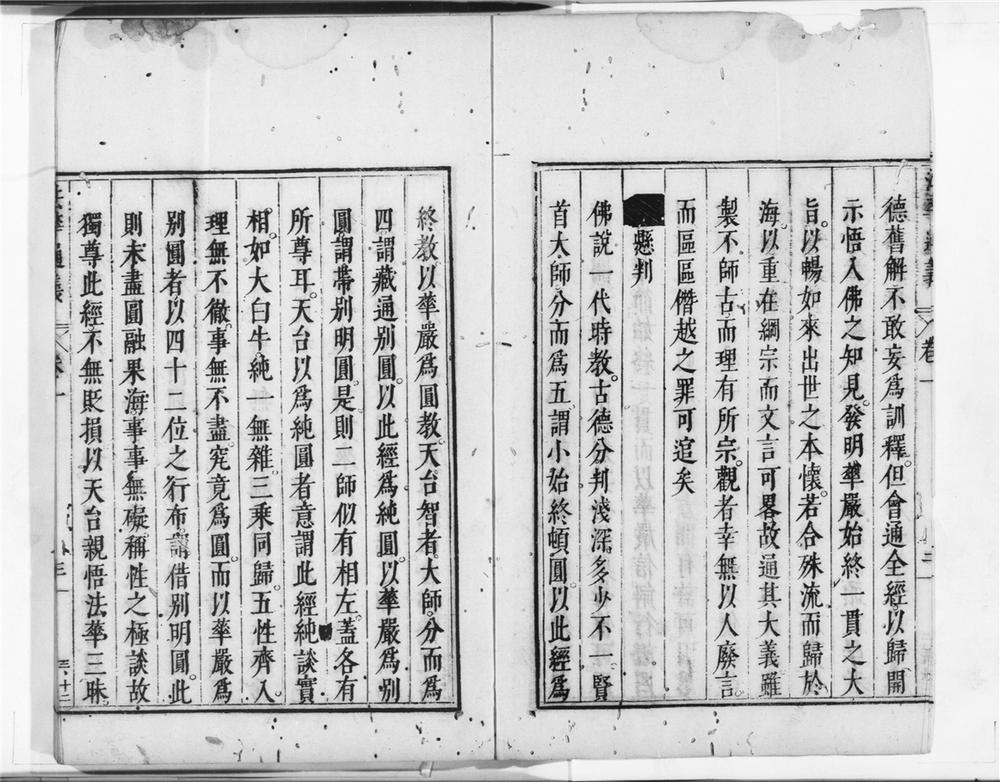 德舊解不敢妄爲訓釋。但會通全經以歸開
示悟入佛之知見。發明華嚴始終一貫之大
旨。以暢如來出世之本懷。若合殊流而歸於
海。以重在綱宗而文言可畧。故通其大義。雖
製不師古而理有所宗。觀者幸無以人廢言。
而區區僭越之罪可逭矣
懸判
佛說一代時教。古德分判淺深多少不一。賢
首大師分而爲五。謂小始終頓圓。以此經爲
終教以華嚴爲圓教。天台智者大師。分而爲
四。謂藏通別圓。以此經爲純圓。以華嚴爲別
圓。謂帶別明圓。是則二師似有相左。蓋各有
所尊耳。天台以爲純圓者意謂此經純談實
相。如大白牛純一無雜。三乘同歸。五性齊入。
理無不徹。事無不盡。究竟爲圓。而以華嚴爲
別圓者以四十二位之行布。謂借別明圓。此
則未盡圓融果海事事無礙稱性之極談。故
獨尊此經。不無貶損以天台親悟法華三昧。
法華通義
卷一
三